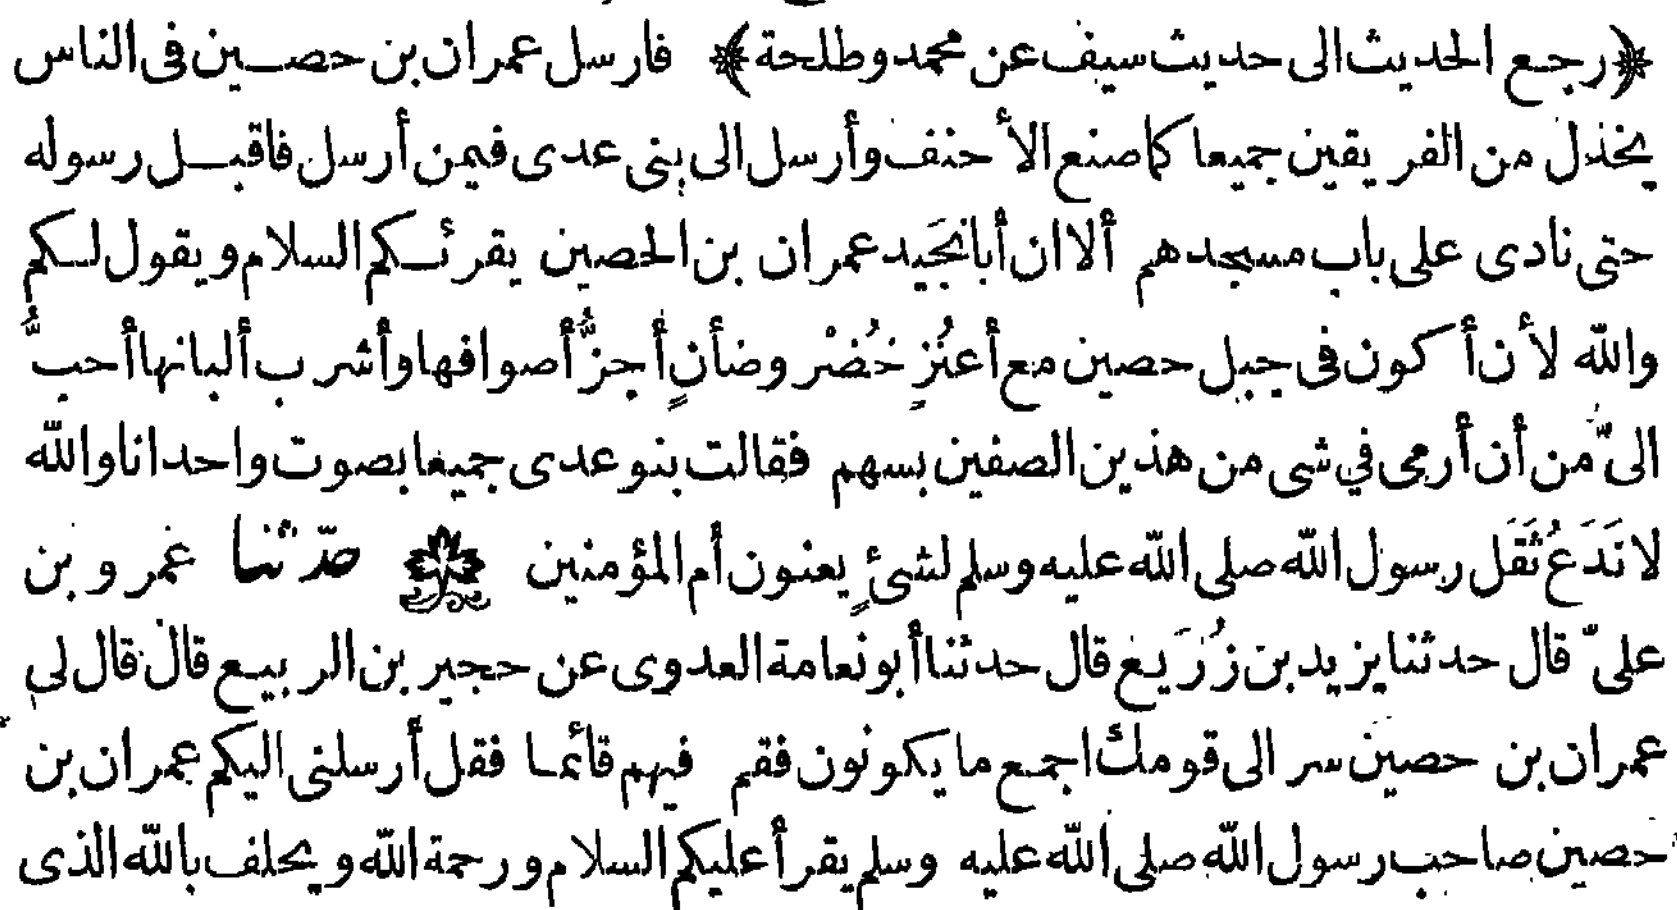 ﴿رجع الحديث الى حديث سيف عن محمد وطلحة﴾ فارسل عمران بن حصين فى الناس
يخذل من الفريقين جميعا كما صنع الأحنف وأرسل الى بنى عدى فيمن أرسل فاقبل رسوله
حتى نادى على باب مسجدهم ألا ان أبا نُجَيد عمران بن الحصين يقرئكم السلام ويقول لكم
والله لأن أكون فى جبل حصين مع أعنُزٍ خُضْر وضأنٍ أجزُّ أصوافها وأشرب ألبانها أحبُّ
الىّ من أن أرمى في شى من هذين الصفين بسهم فقالت بنو عدى جميعا بصوت واحد انا والله
لا نَدَعُ ثَقَل رسول الله صلى الله عليه وسلم لشئٍ يعنون أم المؤمنين حدّثنا عمرو بن
علىّ قال حدثنا يزيد بن زُرَيع قال حدثنا أبو نعامة العدوى عن حجير بن الربيع قال قال لى
عمران بن حصين سر الى قومك اجمع ما يكونون فقم فيهم قائما فقل أرسلنى اليكم عمران بن
حصين صاحب رسول الله صلى الله عليه وسلم يقرأ عليكم السلام ورحمة الله ويحلف بالله الذى